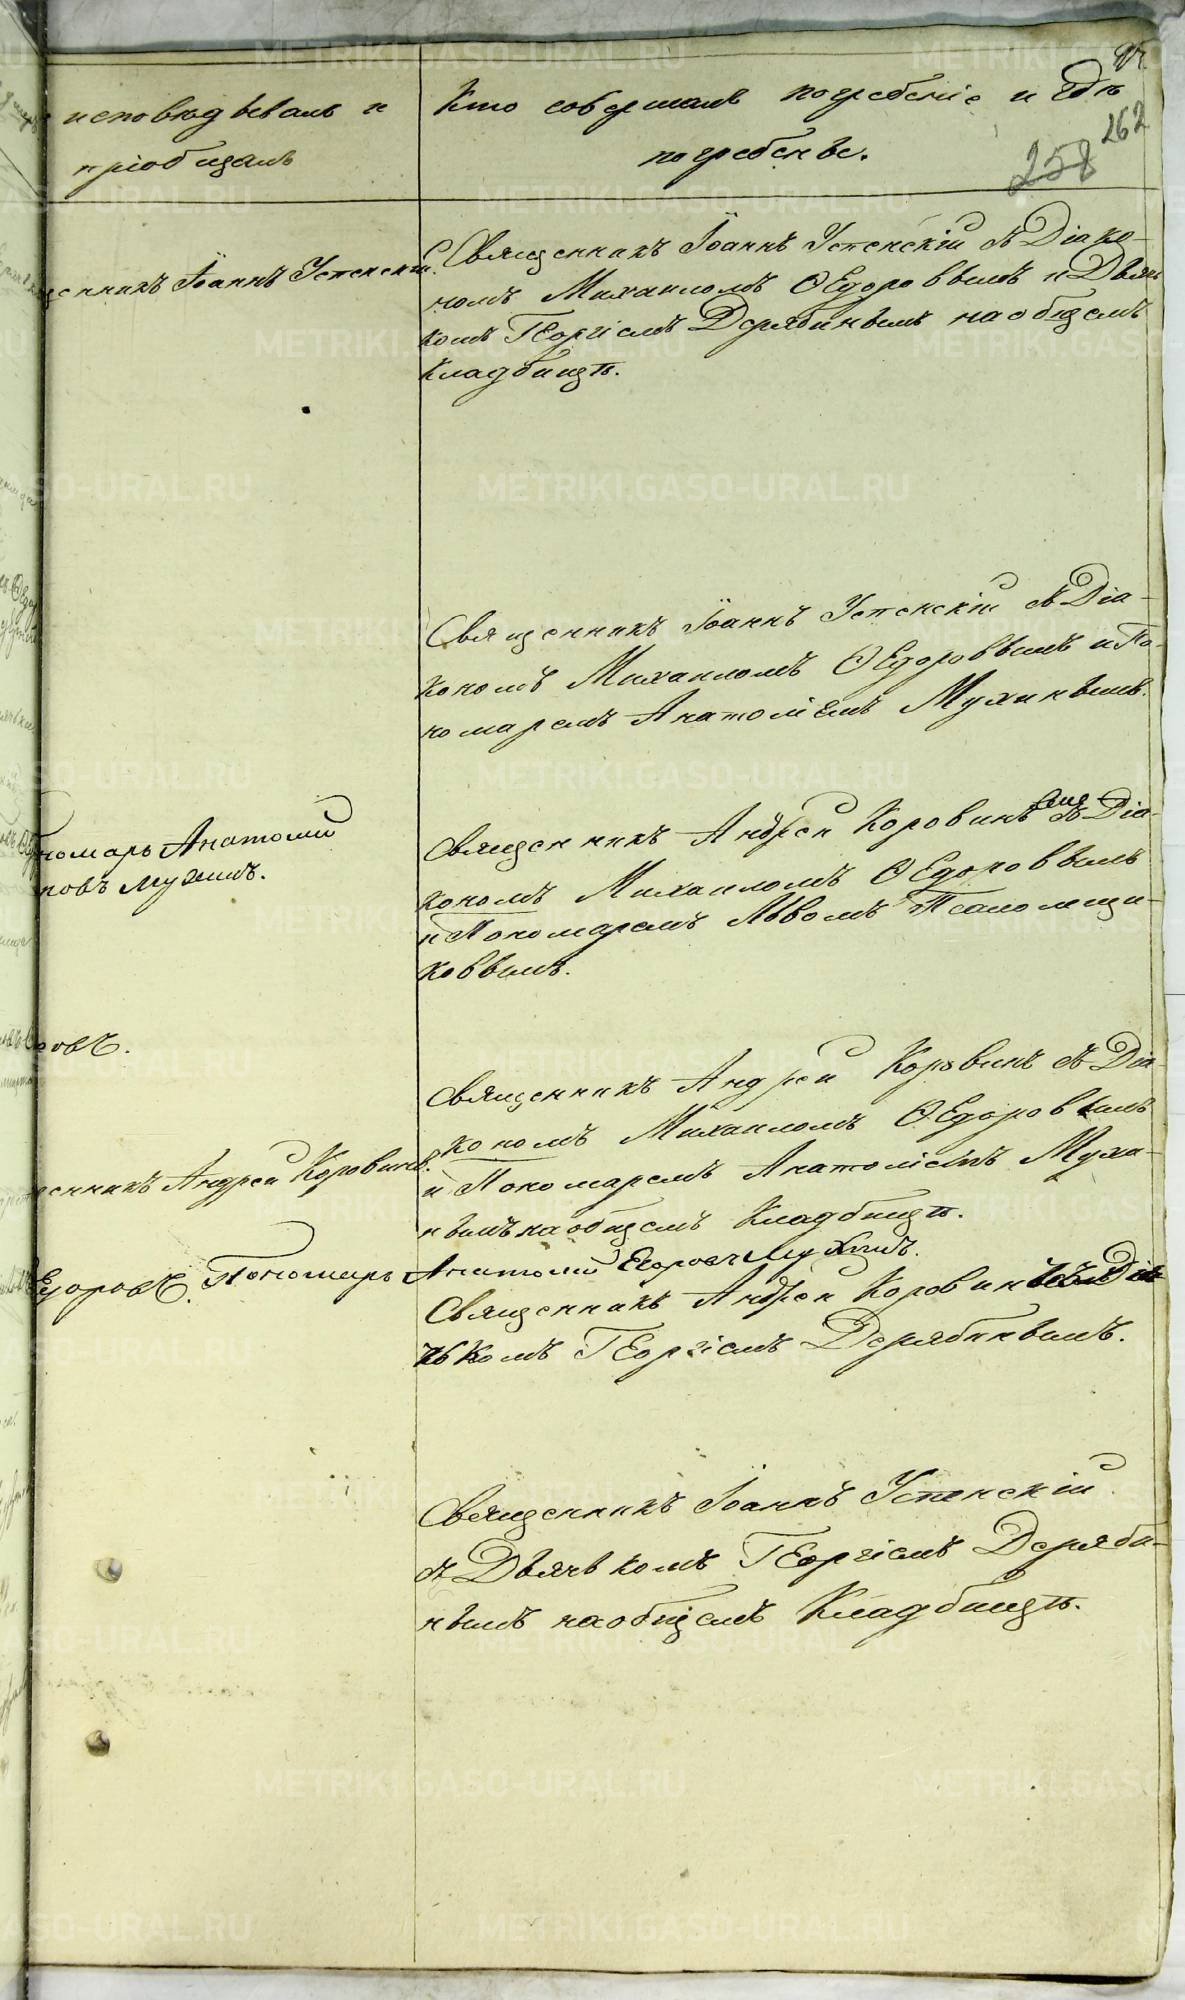 исповѣдывалъ и
пріобщалъ
Кто совершалъ погребеніе и гдѣ
погребены.
262
258
щенникъ Іоаннъ Успенскій.
Священникъ Іоаннъ Успенскій съ Діако-
номъ Михаиломъ Ѳедоровымъ и Дьяч
комъ Георгіемъ Дерябинымъ на общемъ
Кладбищѣ.
Священникъ Іоаннъ Успенскій съ Діа-
кономъ Михаиломъ Ѳедоровымъ и По-
номаремъ Анатоліемъ Мухинымъ.
номарь Анатолий
ровъ Мухинъ.
Священникъ Андрей Коровинъ съ Діа-
кономъ Михаиломъ Ѳедоровымъ
и Пономаремъ Львомъ Псаломщи-
ковымъ.
овъ.
Священникъ Андрей Коровинъ съ Діа-
кономъ Михаиломъ Ѳедоровымъ
и Пономаремъ Анатоліемъ Мухи-
нымъ на общемъ Кладбищѣ.
щенникъ Андрей Коровинъ.
Едоровъ. Пономарь Анатолий Егоровъ Мухинъ.
Священникъ Андрей Коровинъ
комъ Георгіемъ Дерябинымъ.
Священникъ Іоаннъ Успенскій
съ Дьячькомъ Георгіемъ Деряби-
нымъ на общемъ Кладбищѣ.
METRIKI.GASO-URAL.RU